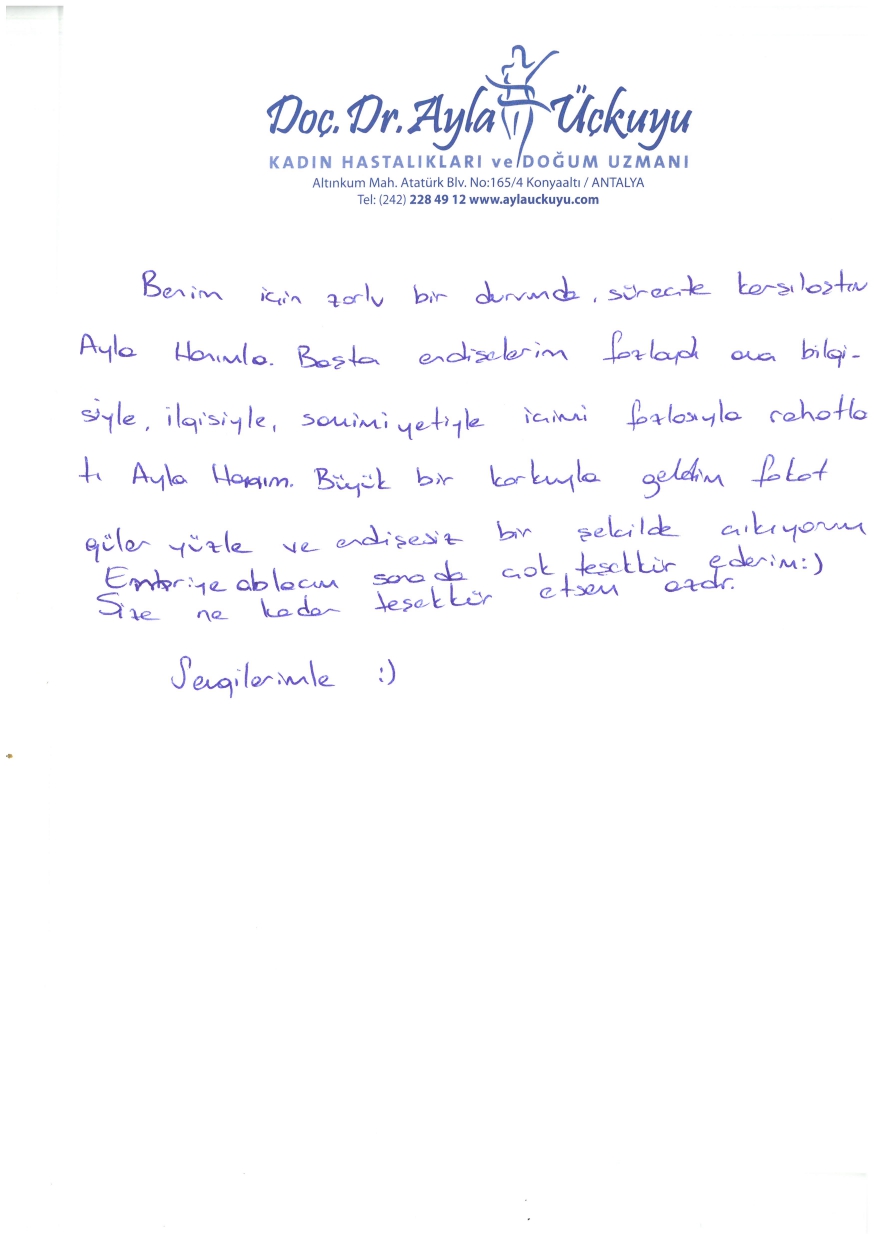 Doç. Dr. Ayla Üçkuyu
KADIN HASTALIKLARI ve DOĞUM UZMANI
Altınkum Mah. Atatürk Blv. No:165/4 Konyaaltı / ANTALYA
Tel: (242) 228 49 12 www.aylauckuyu.com
Benim için zorlu bir durumda, süreçte karşılaştım
Ayla Hanımla. Başta endişelerim fazlaydı ama bilgi-
siyle, ilgisiyle, samimiyetiyle içimi fazlasıyla rahatla
tı Ayla Hanım. Büyük bir korkuyla geldim fakat
güler yüzle ve endişesiz bir şekilde çıkıyorum
ablacım sana da çok teşekkür ederim:)
Size ne kadar teşekkür etsem azdır.
Sevgilerimle :)